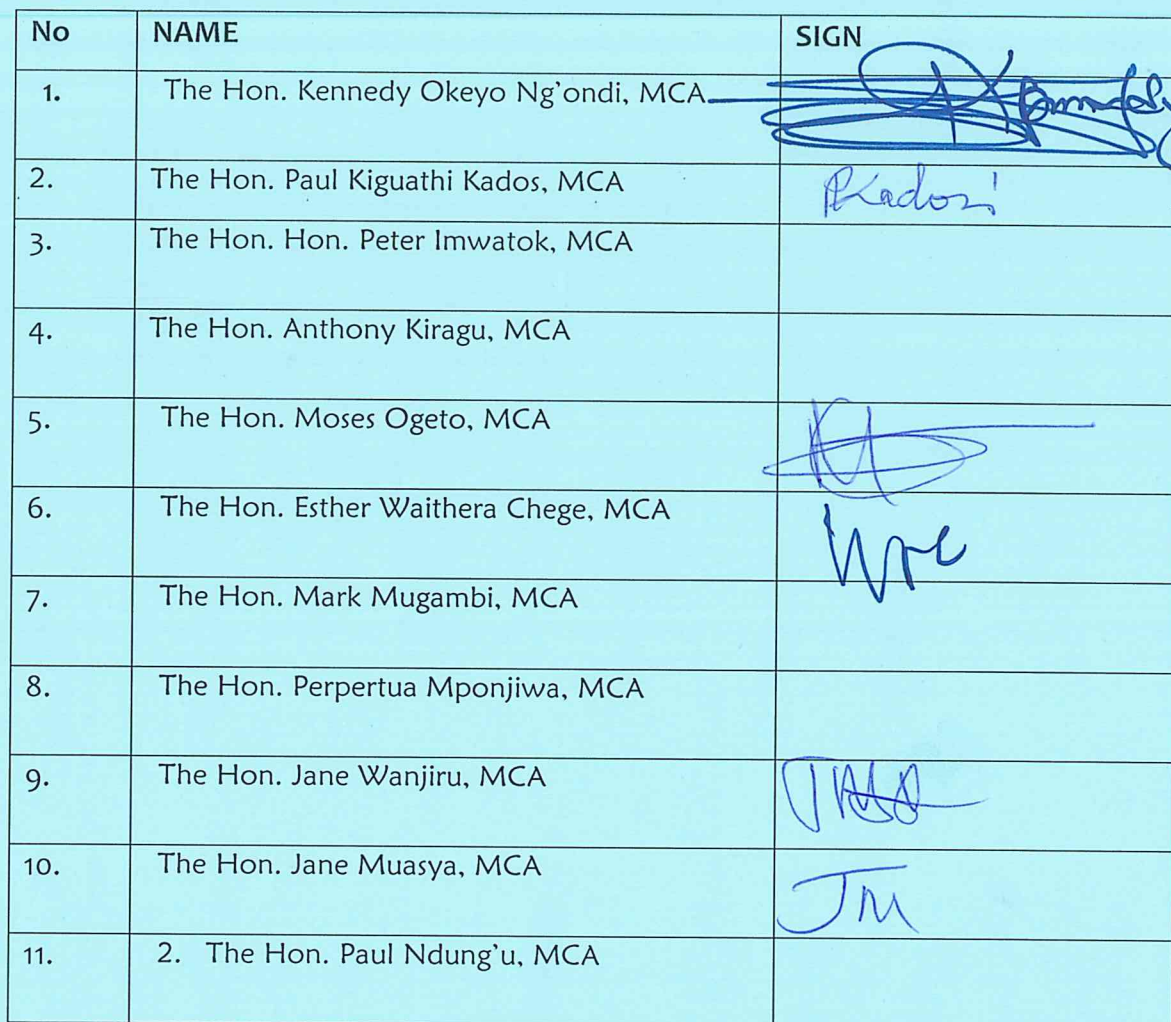 No NAME SIGN
1. The Hon. Kennedy Okeyo Ng'ondi, MCA
2. The Hon. Paul Kiguathi Kados, MCA
3. The Hon. Hon. Peter Imwatok, MCA
4. The Hon. Anthony Kiragu, MCA
5. The Hon. Moses Ogeto, MCA
6. The Hon. Esther Waithera Chege, MCA
7. The Hon. Mark Mugambi, MCA
8. The Hon. Perpertua Mponjiwa, MCA
9. The Hon. Jane Wanjiru, MCA
10. The Hon. Jane Muasya, MCA JM
11. 2. The Hon. Paul Ndung'u, MCA